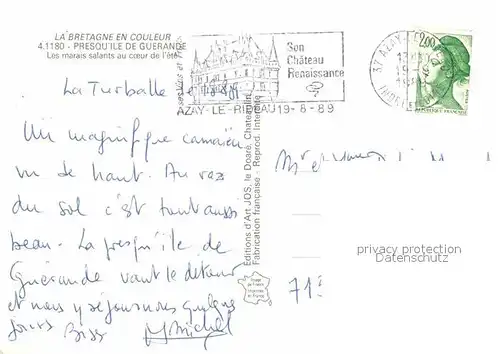 LA BRETAGNE EN COULEUR
4.1180 - PRESQU'ILE DE GUERANDE
Les marais salants au cœur de l'été
Son
Château
Renaissance
AZAY-LE-RIDEAU 19-8-89
37 AZAY-LE
2,00
REPUBLIQUE FRANÇAISE
La Turballe le
Un magnifique camaïeu
vu de haut. Au raz
du sol c'est tout aussi
beau. La presqu'île de
Guérande vaut le détour
et nous y séjournons quelques
jours
Bises
Michel
Editions d'Art JOS, le Doaré, Chateaulin
Fabrication française - Reprod. Interdite
Mr et
71
privacy protection
Datenschutz